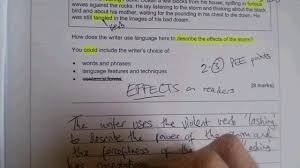 waves against the rocks. He lay listening to the storm and thinking about the black
and about his mother, waiting for the pounding in his chest to die down. He
was still tangled in the images of his bad dream.
verb
How does the writer use language here to describe the effects of the storm?
You could include the writer's choice of:
• words and phrases
• language features and techniques
• sentence forms.
[8 marks]
2-3 PEE points
EFFECTS on readers
The writer uses the violent verb 'lashing'
to describe the power of the storm and
the forcefulness of the